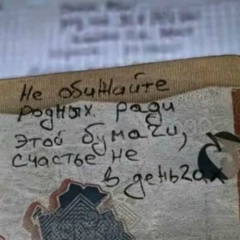 Не обижайте
родных ради
этой бумаги,
счастье не
в деньгах